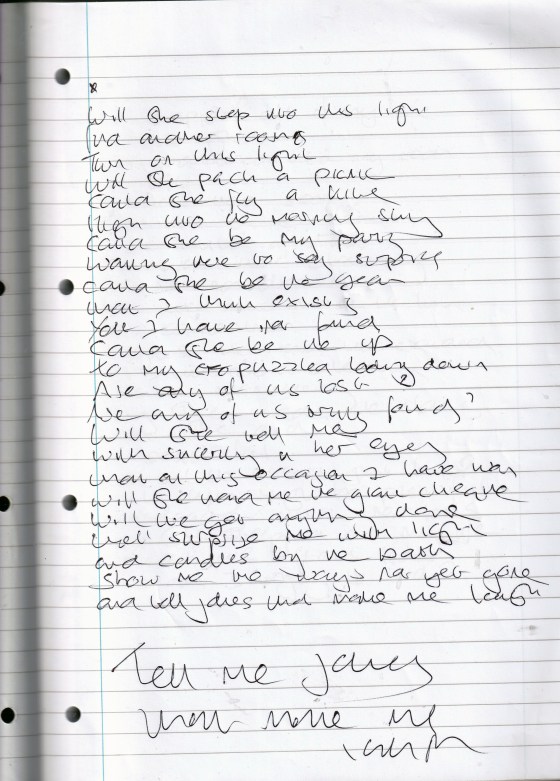 Will she step into this light
find another
Turn on this light
Will she pack a picnic
Could she fly a kite
High into the morning sky
Could she be my party
waiting there to say surprise
Could she be the year
that I think exists
Yet I have not found
Could she be the up
to my puzzled looking down
Are any of us lost?
Are any of us truly found?
Will she tell me
with sincerity in her eyes
that on this occasion I have won
will she hand me the giant cheque
will we get anything done
she'll surprise me with light
and candles by the bath
Show me the ways not yet gone
and tell jokes that make me laugh
Tell me jokes
that make me
laugh